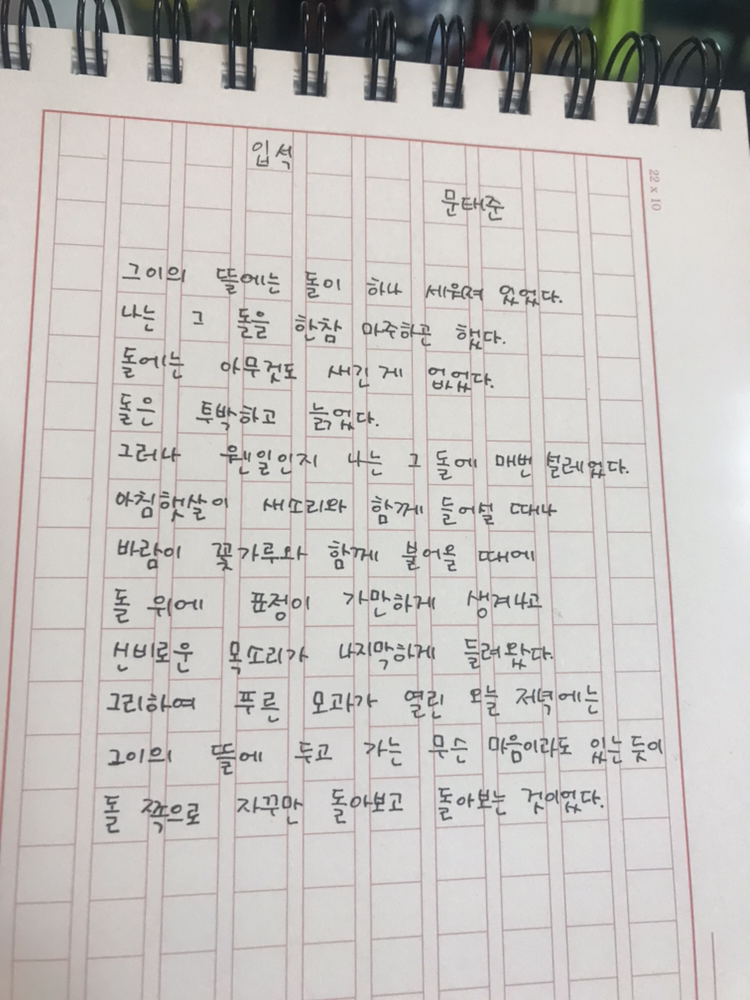 입석
문태준
22 x 10
그이의 뜰에는 돌이 하나 세워져 있었다.
나는 그 돌을 한참 마주하곤 했다.
돌에는 아무것도 새긴 게 없었다.
돌은 투박하고 늙었다.
그러나 웬일인지 나는 그 돌에 매번 설레었다.
아침햇살이 새소리와 함께 들어설 때나
바람이 꽃가루와 함께 불어올 때에
돌 위에 표정이 가만하게 생겨나고
신비로운 목소리가 나지막하게 들려왔다.
그리하여 푸른 모과가 열린 오늘 저녁에는
그이의 뜰에 두고 가는 무슨 마음이라도 있는 듯이
돌 쪽으로 자꾸만 돌아보고 돌아보는 것이었다.